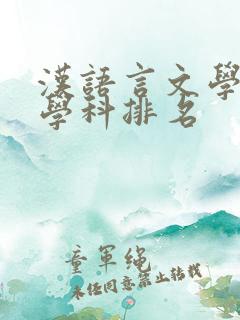 漢語言文學
學科排名
童軍绳
未经同意禁止转载